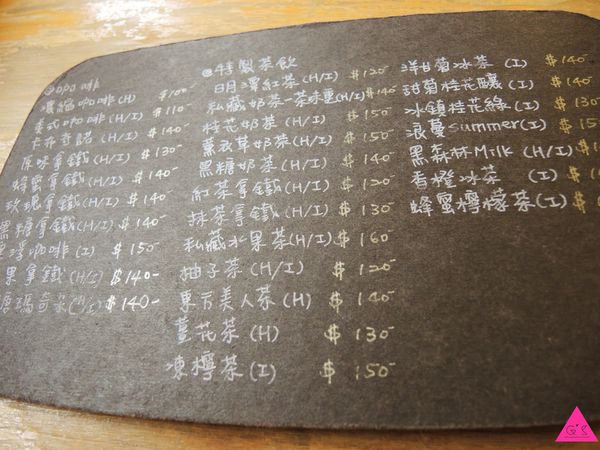 咖啡
濃縮咖啡(H) $100
美式咖啡(H/I) $110
卡布奇諾(H/I) $140-
原味拿鐵(H/I) $130-
蜂蜜拿鐵(H/I) $140-
玫瑰拿鐵(H/I) $140-
黑糖拿鐵(H/I) $140-
漂浮咖啡(I) $150
果拿鐵(H/I) $140-
瑪奇朵(H/I) $140-
特製茶飲
日月潭紅茶(H/I) $120-
私藏奶茶-茶味重(H/I) $140
桂花奶茶(H/I) $150-
薰衣草奶茶(H/I) $150-
黑糖奶茶(H/I) $140-
紅茶拿鐵(H/I) $120-
抹茶拿鐵(H/I) $130-
私藏水果茶(H/I) $160-
柚子茶(H/I) $120-
東方美人茶(H) $140-
薑花茶(H) $130-
凍檸茶(I) $150-
洋甘菊冰茶(I) $140-
甜菊桂花釀(I) $140-
冰鎮桂花綠(I) $130-
浪蔓summer(I) $15
黑森林Milk(H/I) $14
香橙冰茶(I) $14
蜂蜜檸檬茶(I) $
G'S